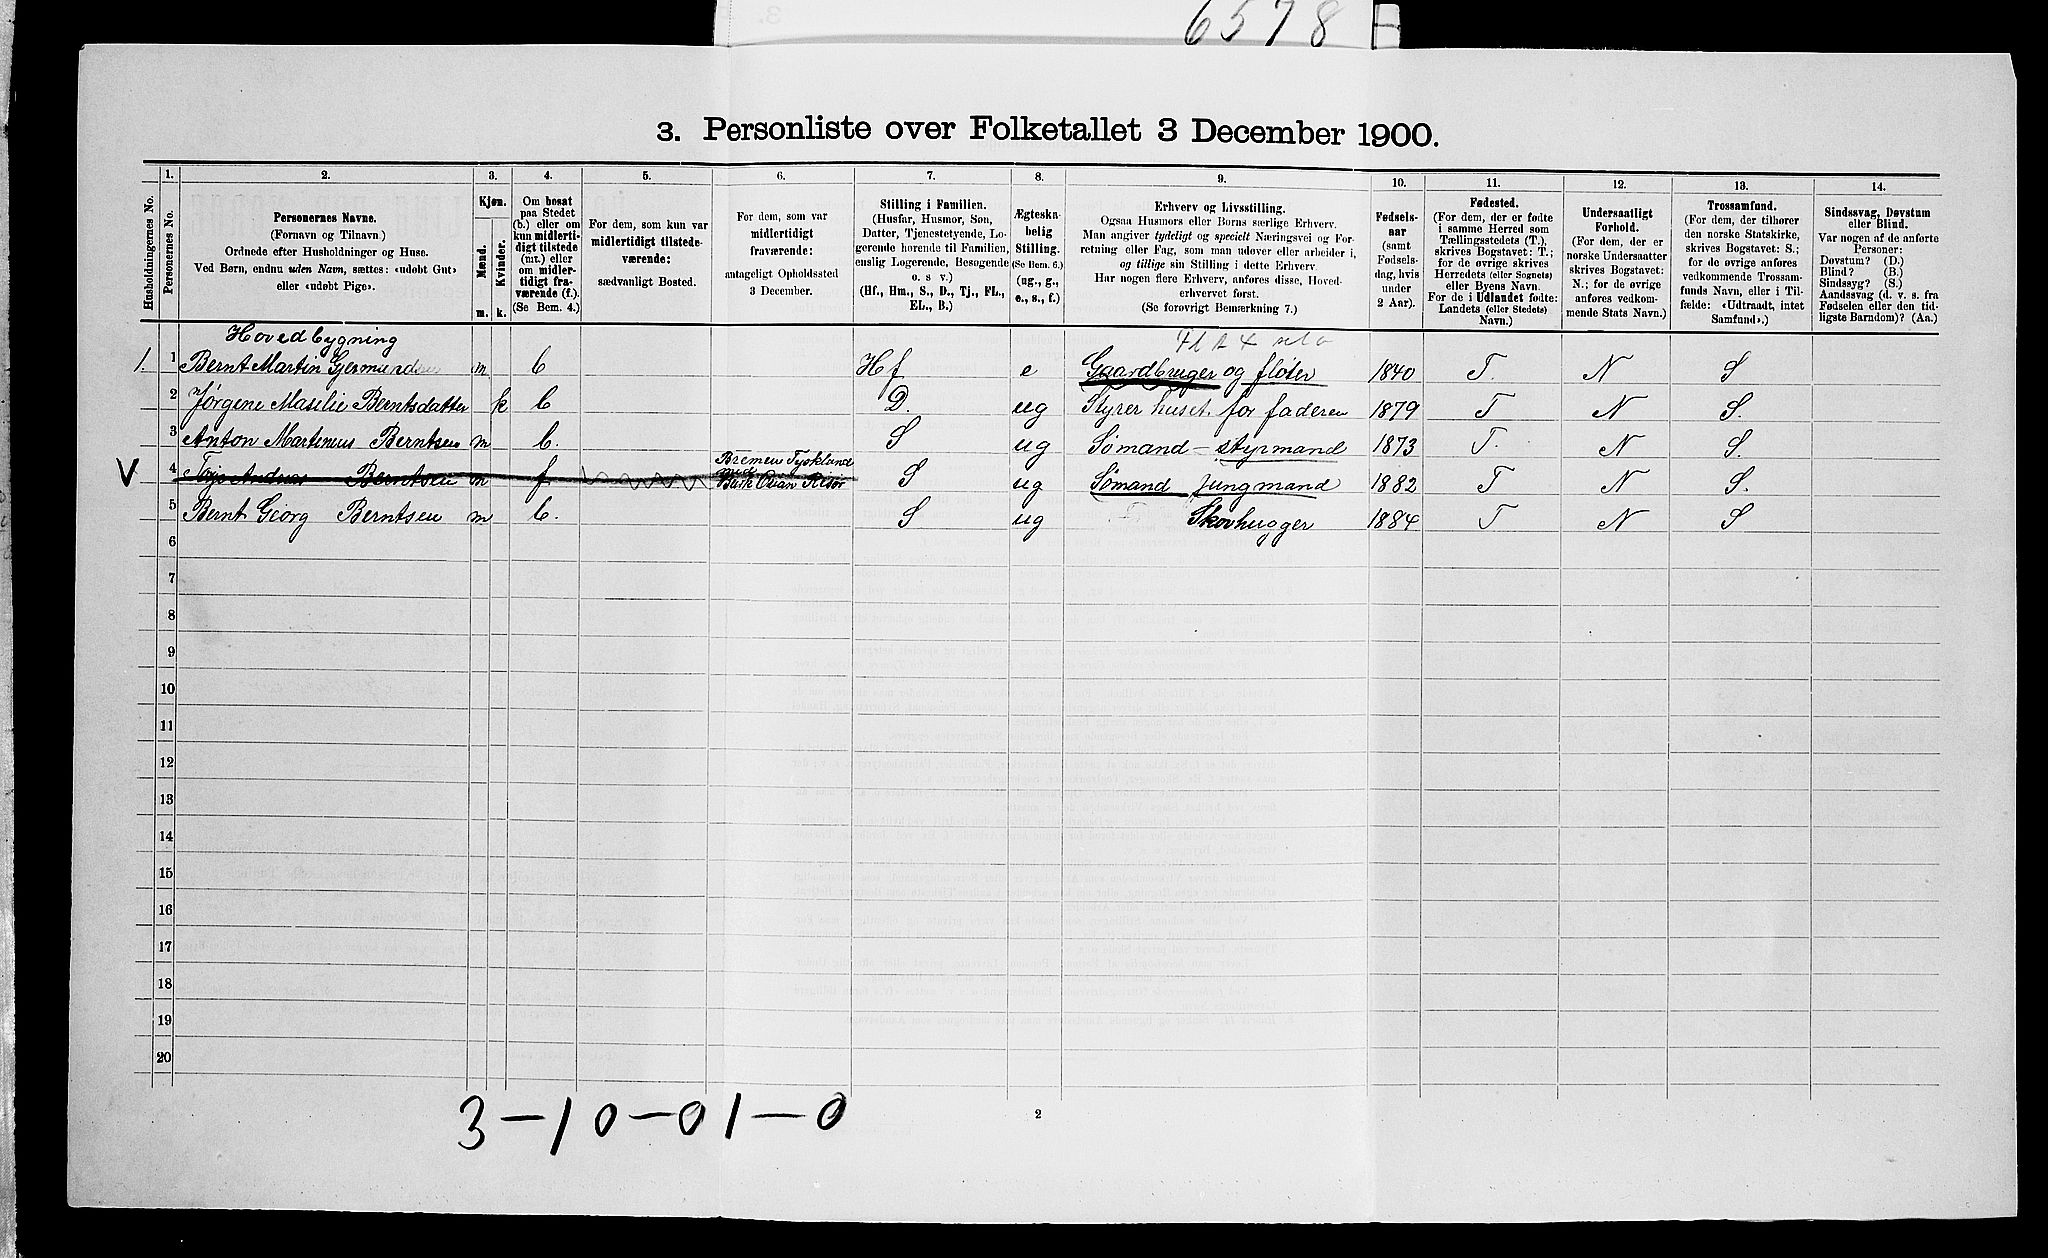 6578
3. Personliste over Folketallet 3 December 1900.
Husholdningernes No.
1.
Personernes No.
2.
Personernes Navne.
(Fornavn og Tilnavn.)
Ordnede efter Husholdninger og Huse.
Ved Børn, endnu uden Navn, sættes: «udøbt Gut»
eller «udøbt Pige».
3.
Kjøn.
Mænd.
Kvinder.
m. k.
4.
Om bosat
paa Stedet
(b.) eller om
kun midlerti-
digt tilstede
(mt.) eller
om midler-
tidigt fra-
værende (f.).
(Se Bem. 4.)
5.
For dem, som kun var
midlertidigt tilstede-
værende:
sædvanligt Bosted.
6.
For dem, som var
midlertidigt
fraværende:
antageligt Opholdssted
3 December.
7.
Stilling i Familien.
(Husfar, Husmor, Søn,
Datter, Tjenestetyende, Lo-
gerende hørende til Familien,
enslig Logerende, Besøgende
o. s v.)
(Hf., Hm., S., D., Tj., FL.,
EL., B.)
8.
Ægteska-
belig
Stilling.
(Se Bem. 6.)
(ug., g.,
e., s., f.)
9.
Erhverv og Livsstilling.
Ogsaa Husmors eller Børns særlige Erhverv.
Man angiver tydeligt og specielt Næringsvei og For-
retning eller Fag, som man udøver eller arbeider i,
og tillige sin Stilling i dette Erhverv.
Har nogen flere Erhverv, anføres disse, Hoved-
erhvervet først.
(Se forøvrigt Bemærkning 7.)
10.
Fødsels-
aar
(samt
Fødsels-
dag, hvis
under
2 Aar).
11.
Fødested.
(For dem, der er fødte
i samme Herred som
Tællingsstedets (T.),
skrives Bogstavet: T.;
for de øvrige skrives
Herredets (eller Sognets)
eller Byens Navn.
For de i Udlandet fødte:
Landets (eller Stedets)
Navn.)
12.
Undersaatligt
Forhold.
(For dem, der er
norske Undersaatter
skrives Bogstavet:
N.; for de øvrige
anføres vedkom-
mende Stats Navn.)
13.
Trossamfund.
(For dem, der tilhører
den norske Statskirke,
skrives Bogstavet: S.;
for de øvrige anføres
vedkommende Trossam-
funds Navn, eller i Til-
fælde: «Udtraadt, intet
Samfund».)
14.
Sindssvag, Døvstum
eller Blind.
Var nogen af de anførte
Personer:
Døvstum? (D.)
Blind? (B.)
Sindssyg? (S.)
Aandssvag (d. v. s. fra
Fødselen eller den tid-
ligste Barndom)? (Aa.)
Hovedbygning
1. 1 Bernt Martin Gjermundsen m b Hf e Gaardbruger og fløter 1840 T. N S
2 Jørgene Maselie Berntsdatter k b D. ug Styrer huset for faderen 1879 T N S.
3 Anton Martinius Berntsen m b. S ug Sømand - styrmand 1873 T. N S.
Bremen Tyskland
V 4 Andreas Berntsen m f med Bark Risør S ug Sømand jungmand 1882 T N S.
5 Bernt Georg Berntsen m b. S ug Skovhugger 1884 T N S
6
7
8
9
10
11
12
13
14
15
16
17
18
19
20
3-10-01-0
2